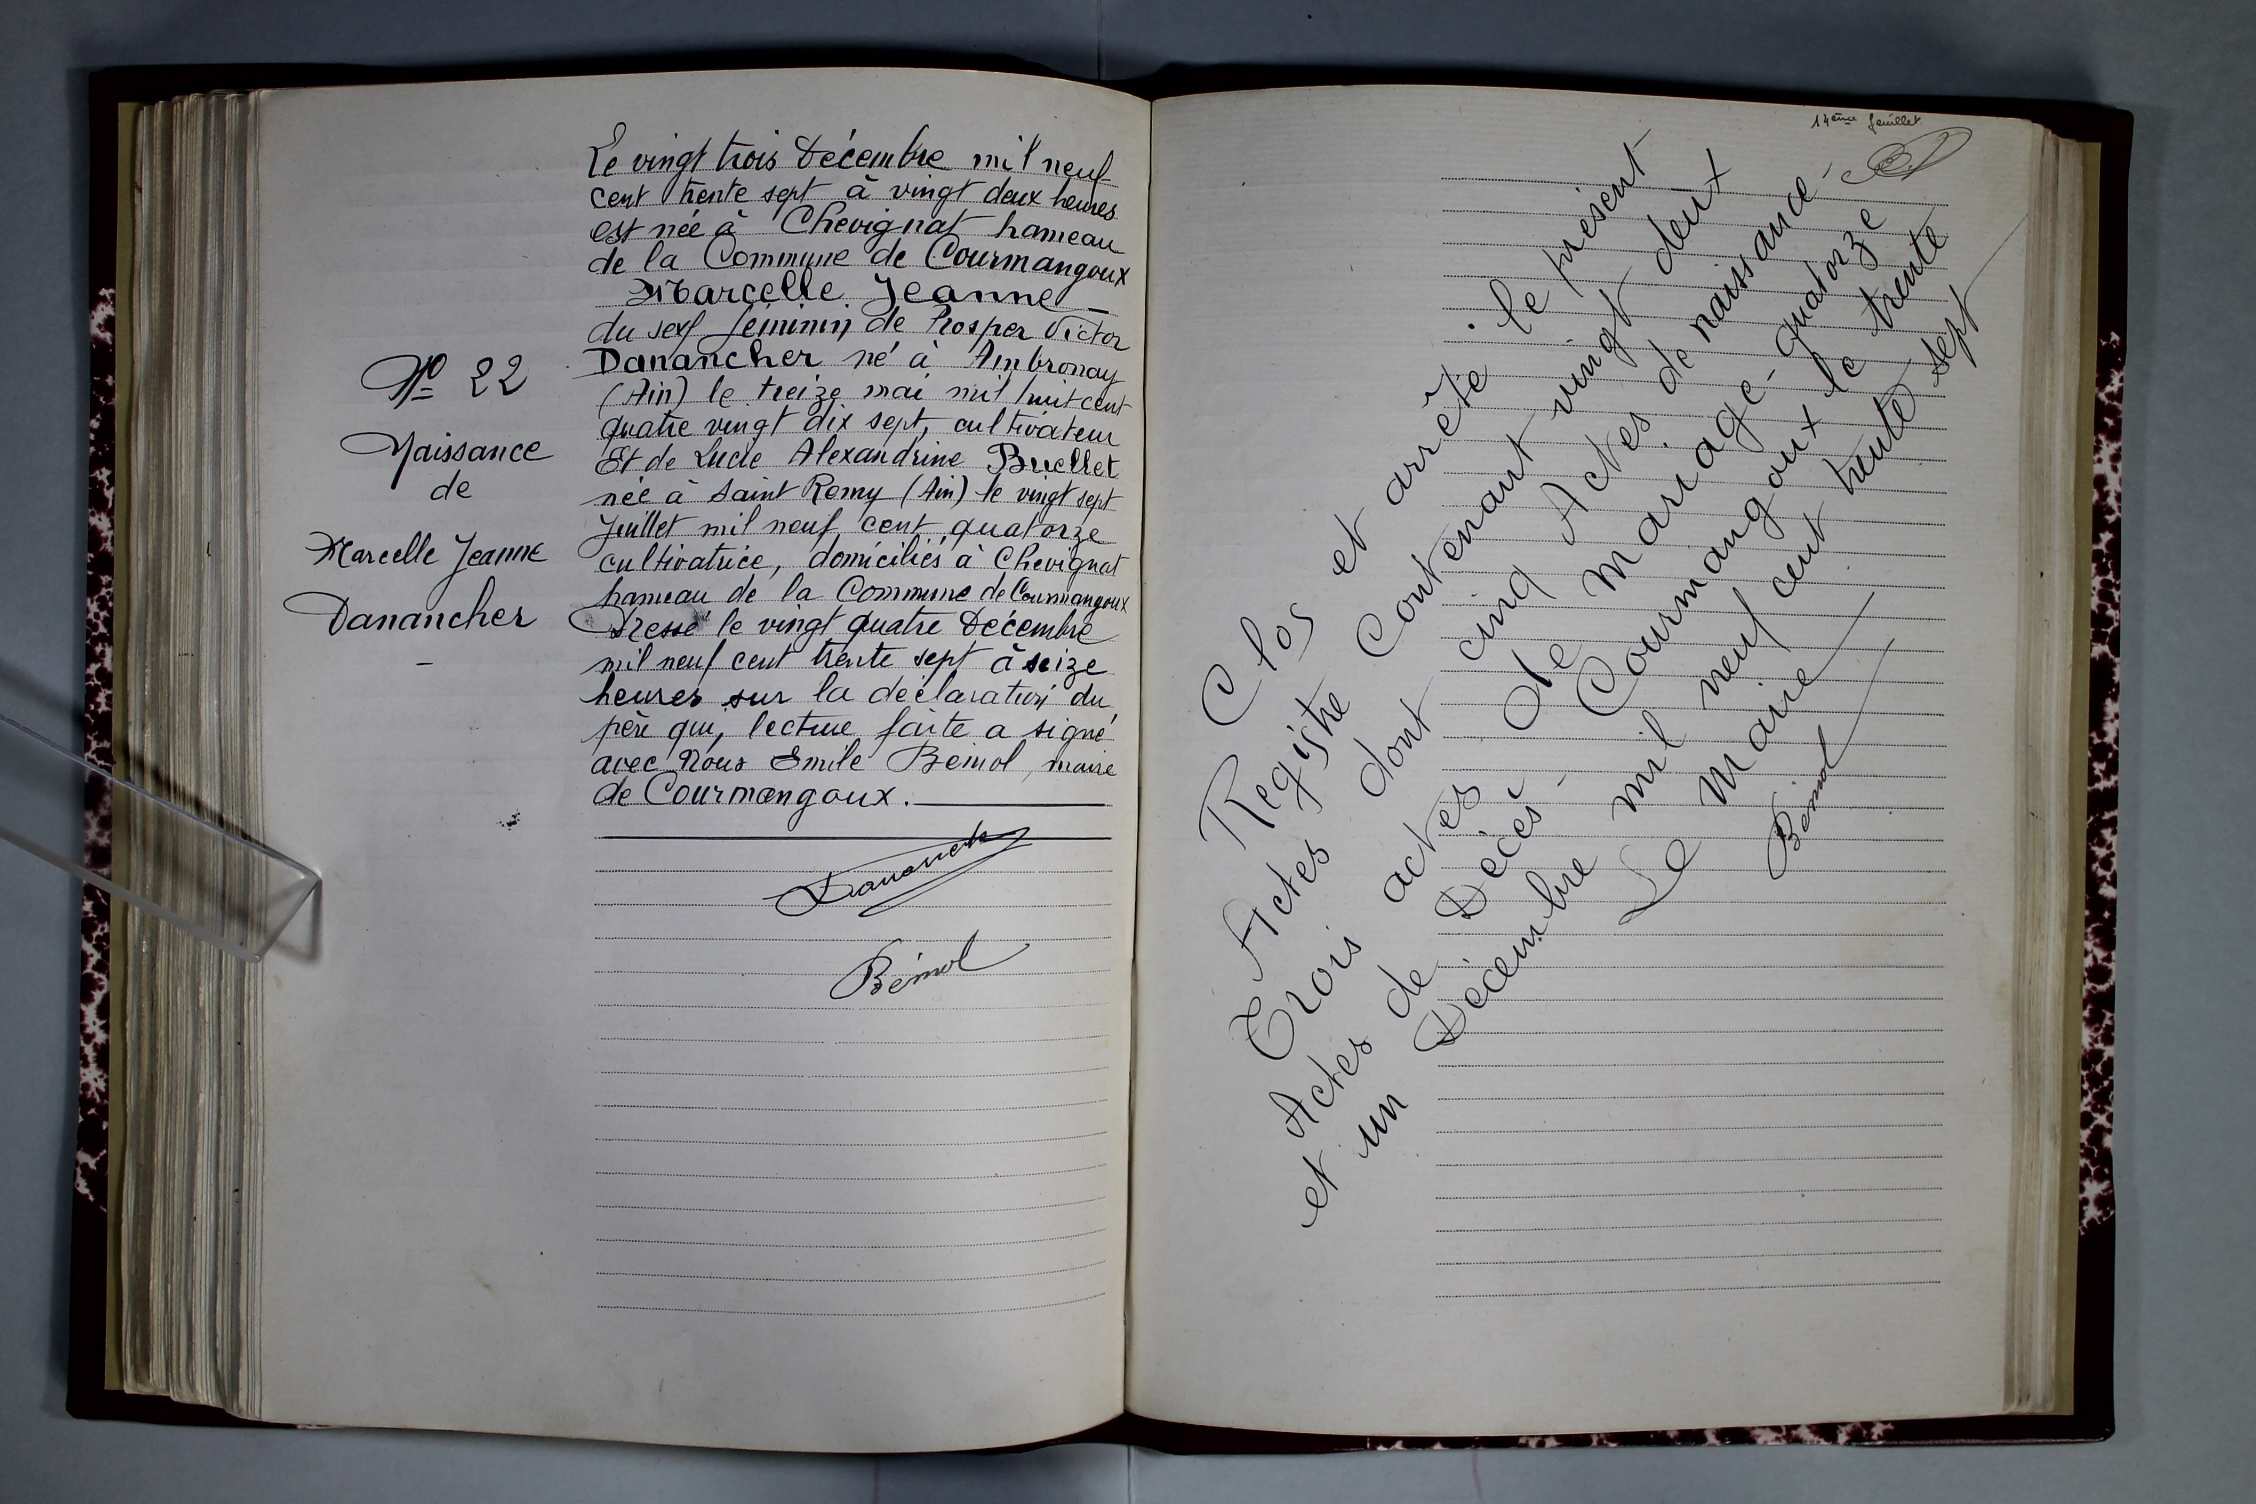 Nº 22
Naissance
de
Marcelle Jeanne
Danancher
Le vingt trois Décembre mil neuf
cent trente sept à vingt deux heures
est née à Chevignat hameau
de la Commune de Courmangoux
Marcelle Jeanne
du sexe féminin de Prosper Victor
Danancher né à Ambronay
(Ain) le treize mai mil huit cent
quatre vingt dix sept, cultivateur
Et de Lucie Alexandrine Buellet
née à Saint Remy (Ain) le vingt sept
Juillet mil neuf cent quatorze
cultivatrice, domiciliés à Chevignat
hameau de la Commune de Courmangoux
Dressé le vingt quatre Décembre
mil neuf cent trente sept à seize
heures sur la déclaration du
père qui, lecture faite a signé
avec Nous Emile Bémol, maire
de Courmangoux.
Danancher
Bémol
14ème feuillet
Clos et arrêté le présent
Registre Contenant vingt deux
Actes dont cinq Actes de naissance-
Trois actes de Mariage - quatorze
Actes de Décès - Courmangoux le trente
et un Décembre mil neuf cent trente sept
Le Maire
Bémol